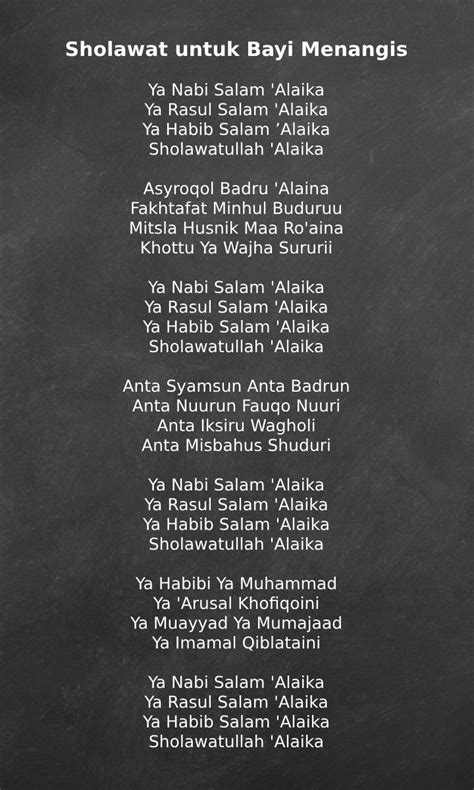 Sholawat untuk Bayi Menangis
Ya Nabi Salam 'Alaika
Ya Rasul Salam 'Alaika
Ya Habib Salam ’Alaika
Sholawatullah 'Alaika
Asyroqol Badru 'Alaina
Fakhtafat Minhul Buduruu
Mitsla Husnik Maa Ro'aina
Khottu Ya Wajha Sururii
Ya Nabi Salam 'Alaika
Ya Rasul Salam 'Alaika
Ya Habib Salam 'Alaika
Sholawatullah 'Alaika
Anta Syamsun Anta Badrun
Anta Nuurun Fauqo Nuuri
Anta Iksiru Wagholi
Anta Misbahus Shuduri
Ya Nabi Salam 'Alaika
Ya Rasul Salam 'Alaika
Ya Habib Salam 'Alaika
Sholawatullah 'Alaika
Ya Habibi Ya Muhammad
Ya 'Arusal Khofiqoini
Ya Muayyad Ya Mumajaad
Ya Imamal Qiblataini
Ya Nabi Salam 'Alaika
Ya Rasul Salam 'Alaika
Ya Habib Salam 'Alaika
Sholawatullah 'Alaika